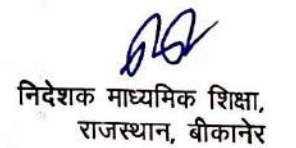 निदेशक माध्यमिक शिक्षा,
राजस्थान, बीकानेर